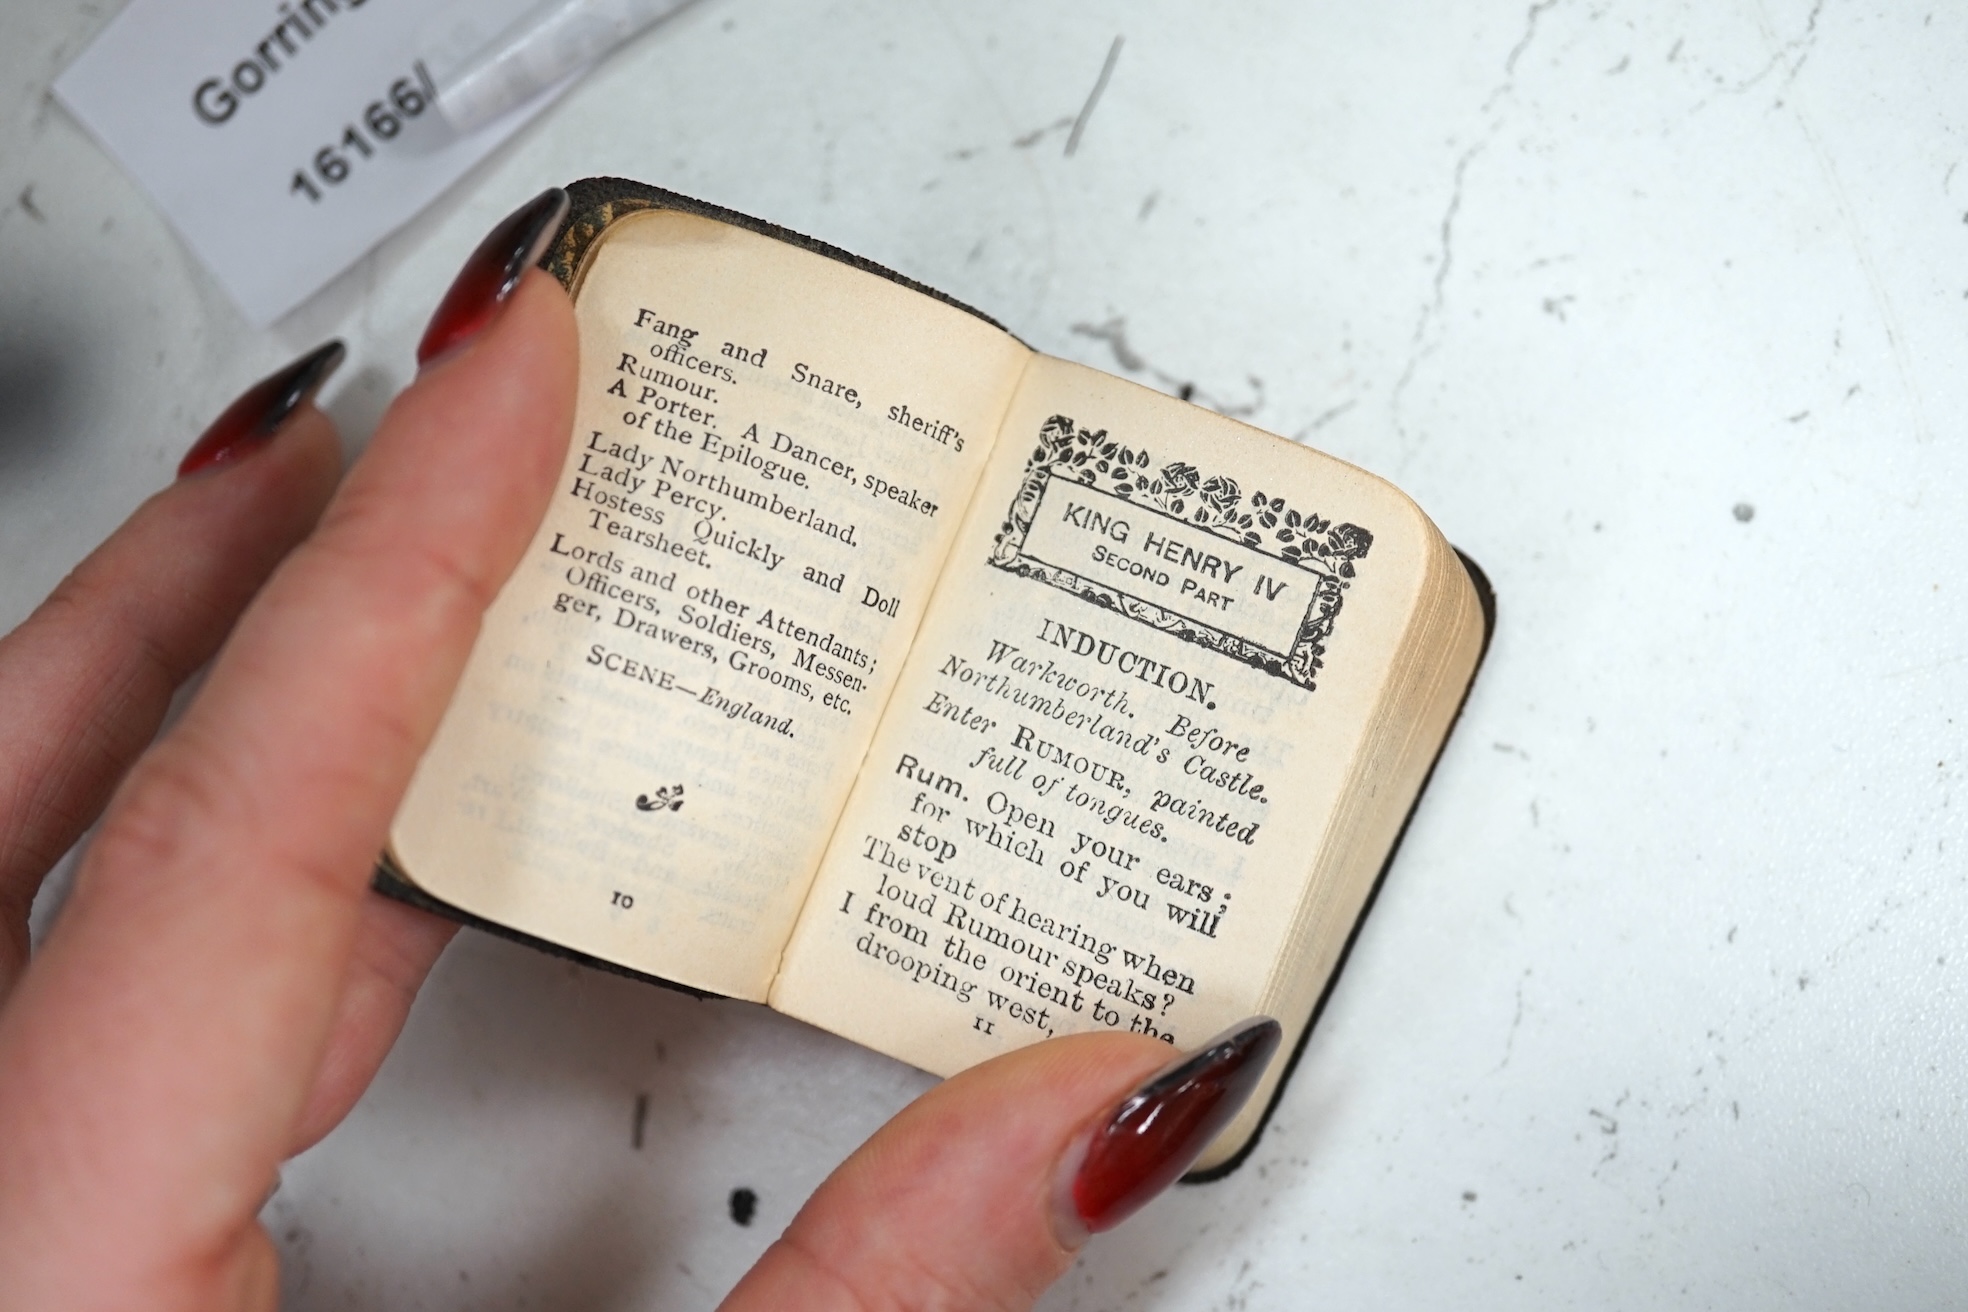 16166/
Fang and Snare, sheriff's
officers.
Rumour.
A Porter. A Dancer, speaker
of the Epilogue.
Lady Northumberland.
Lady Percy.
Hostess Quickly and Doll
Tearsheet.
Lords and other Attendants;
Officers, Soldiers, Messen-
ger, Drawers, Grooms, etc.
SCENE—England.
10
KING HENRY IV
SECOND PART
INDUCTION.
Warkworth. Before
Northumberland's Castle.
Enter RUMOUR, painted
full of tongues.
Rum. Open your ears;
for which of you will
stop
The vent of hearing when
loud Rumour speaks?
I from the orient to the
drooping west,
11